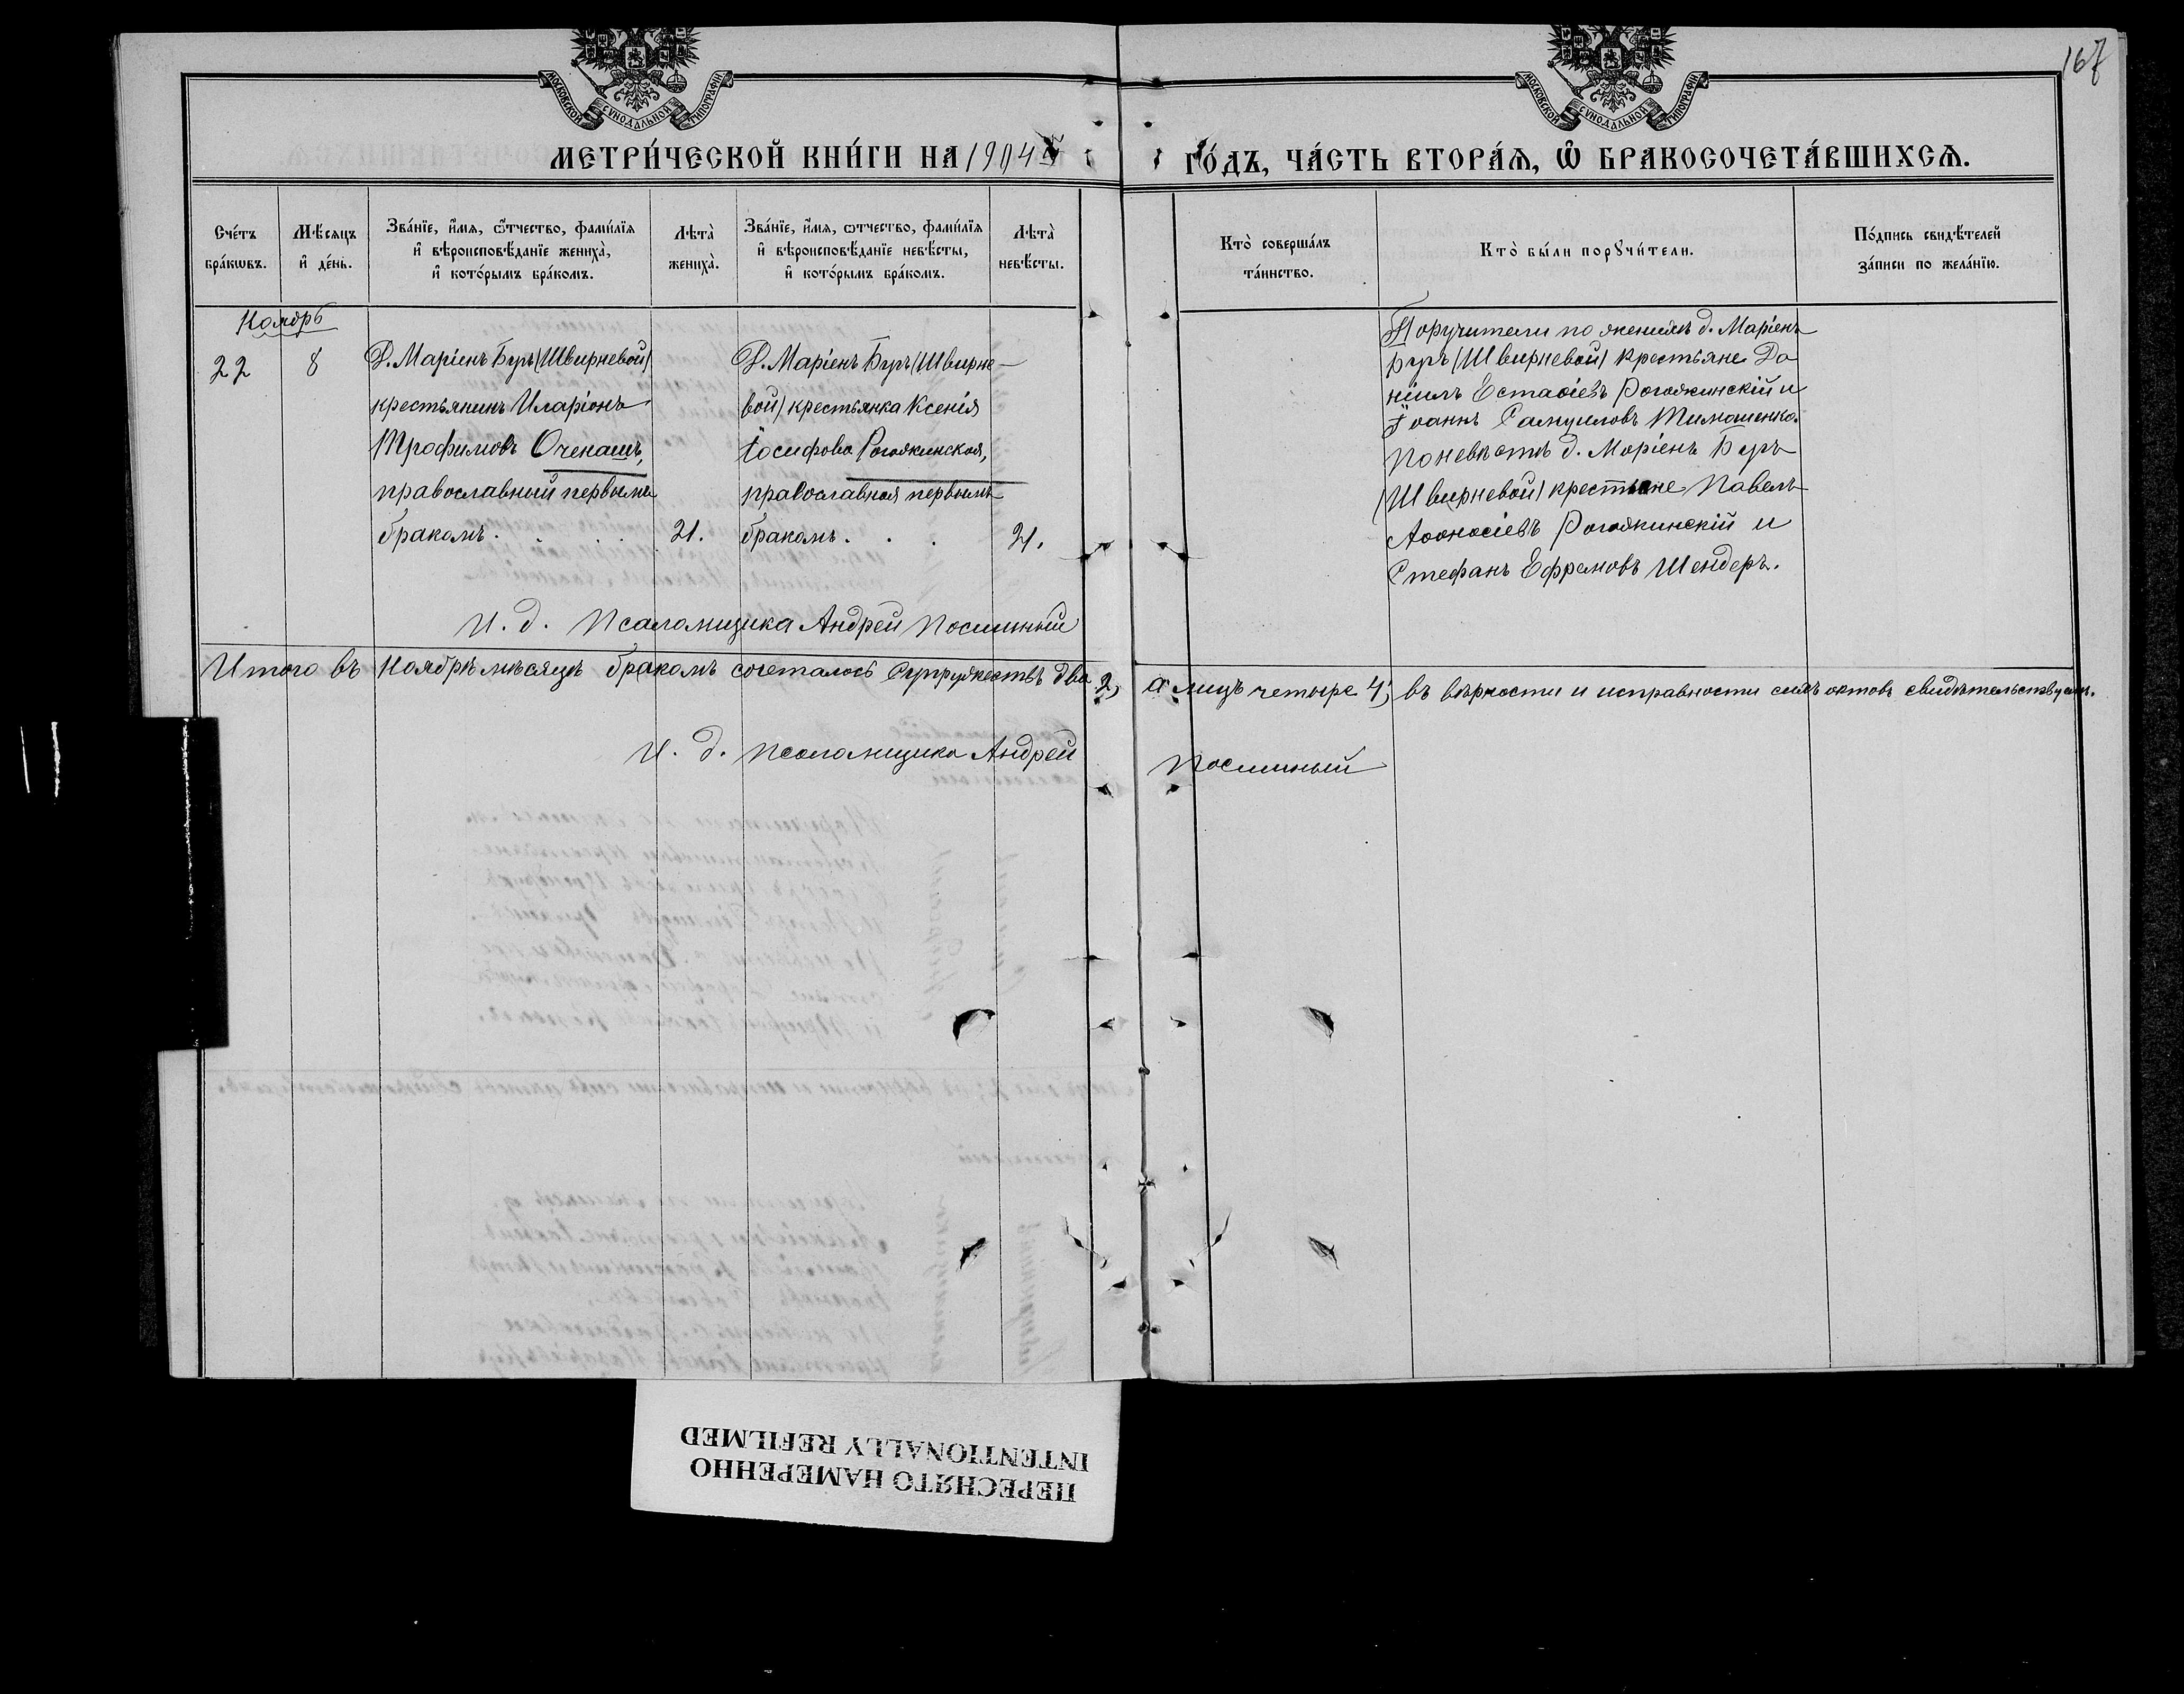 МОСКОВСКОЙ СѴНОДАЛЬНОЙ ТИПОГРАФІИ
МОСКОВСКОЙ СѴНОДАЛЬНОЙ ТИПОГРАФІИ
167
МЕТРИ́ЧЕСКОЙ КНИ́ГИ НА 1904й
ГО́ДЪ, ЧА́СТЬ ВТОРА́Ѧ, Ѽ БРАКОСОЧЕТА́ВШИХСѦ.
Сче́тъ бра́кѡвъ.
Мѣ́сяцъ и҆ де́нь.
Зва́нїе, и҆́мя, ѻ҆́тчество, фами́лїя
и҆ вѣроисповѣ́данїе жениха̀,
и҆ кото́рымъ бра́комъ.
Лѣта̀ жениха̀.
Зва́нїе, и҆́мя, ѻтчество, фами́лїя
и҆ вѣроисповѣ́данїе невѣ́сты,
и҆ кото́рымъ бра́комъ.
Лѣта̀ невѣ́сты.
Кто̀ соверша́лъ
та́инство.
Кто̀ бы́ли порꙋчи́тели.
По́дпись свидѣ́телей
за́писи по жела́нїю.
Ноябрь
22
8
Д. Маріенъ Буръ (Швирневой)
крестьянинъ Иларіонъ
Трофимовъ Оченашъ,
православный первымъ
бракомъ.
21.
Д. Маріенъ Буръ (Швирне-
вой) крестьянка Ксенія
Іосифова Рогожинская,
православная первымъ
бракомъ.
21.
Поручители по женихѣ д. Маріенъ
Буръ (Швирневой) крестьяне Да
ніилъ Естафіевъ Рогожинскій и
Іоаннъ Самуиловъ Тимошенко.
По невѣстѣ д. Маріенъ Буръ
(Швирневой) крестьяне Павелъ
Аѳанасіевъ Рогожинскій и
Стефанъ Ефремовъ Шендеръ.
И. д. Псаломщика Андрей
Итого въ Ноябрѣ мѣсяцѣ бракомъ сочеталось Супружествъ два 2, а лицъ четыре 4; въ вѣрности и исправности сихъ актовъ свидѣтельствуемъ.
И. д. Псаломщика Андрей
ПЕРЕСНЯТО НАМЕРЕННО
INTENTIONALLY REFILMED